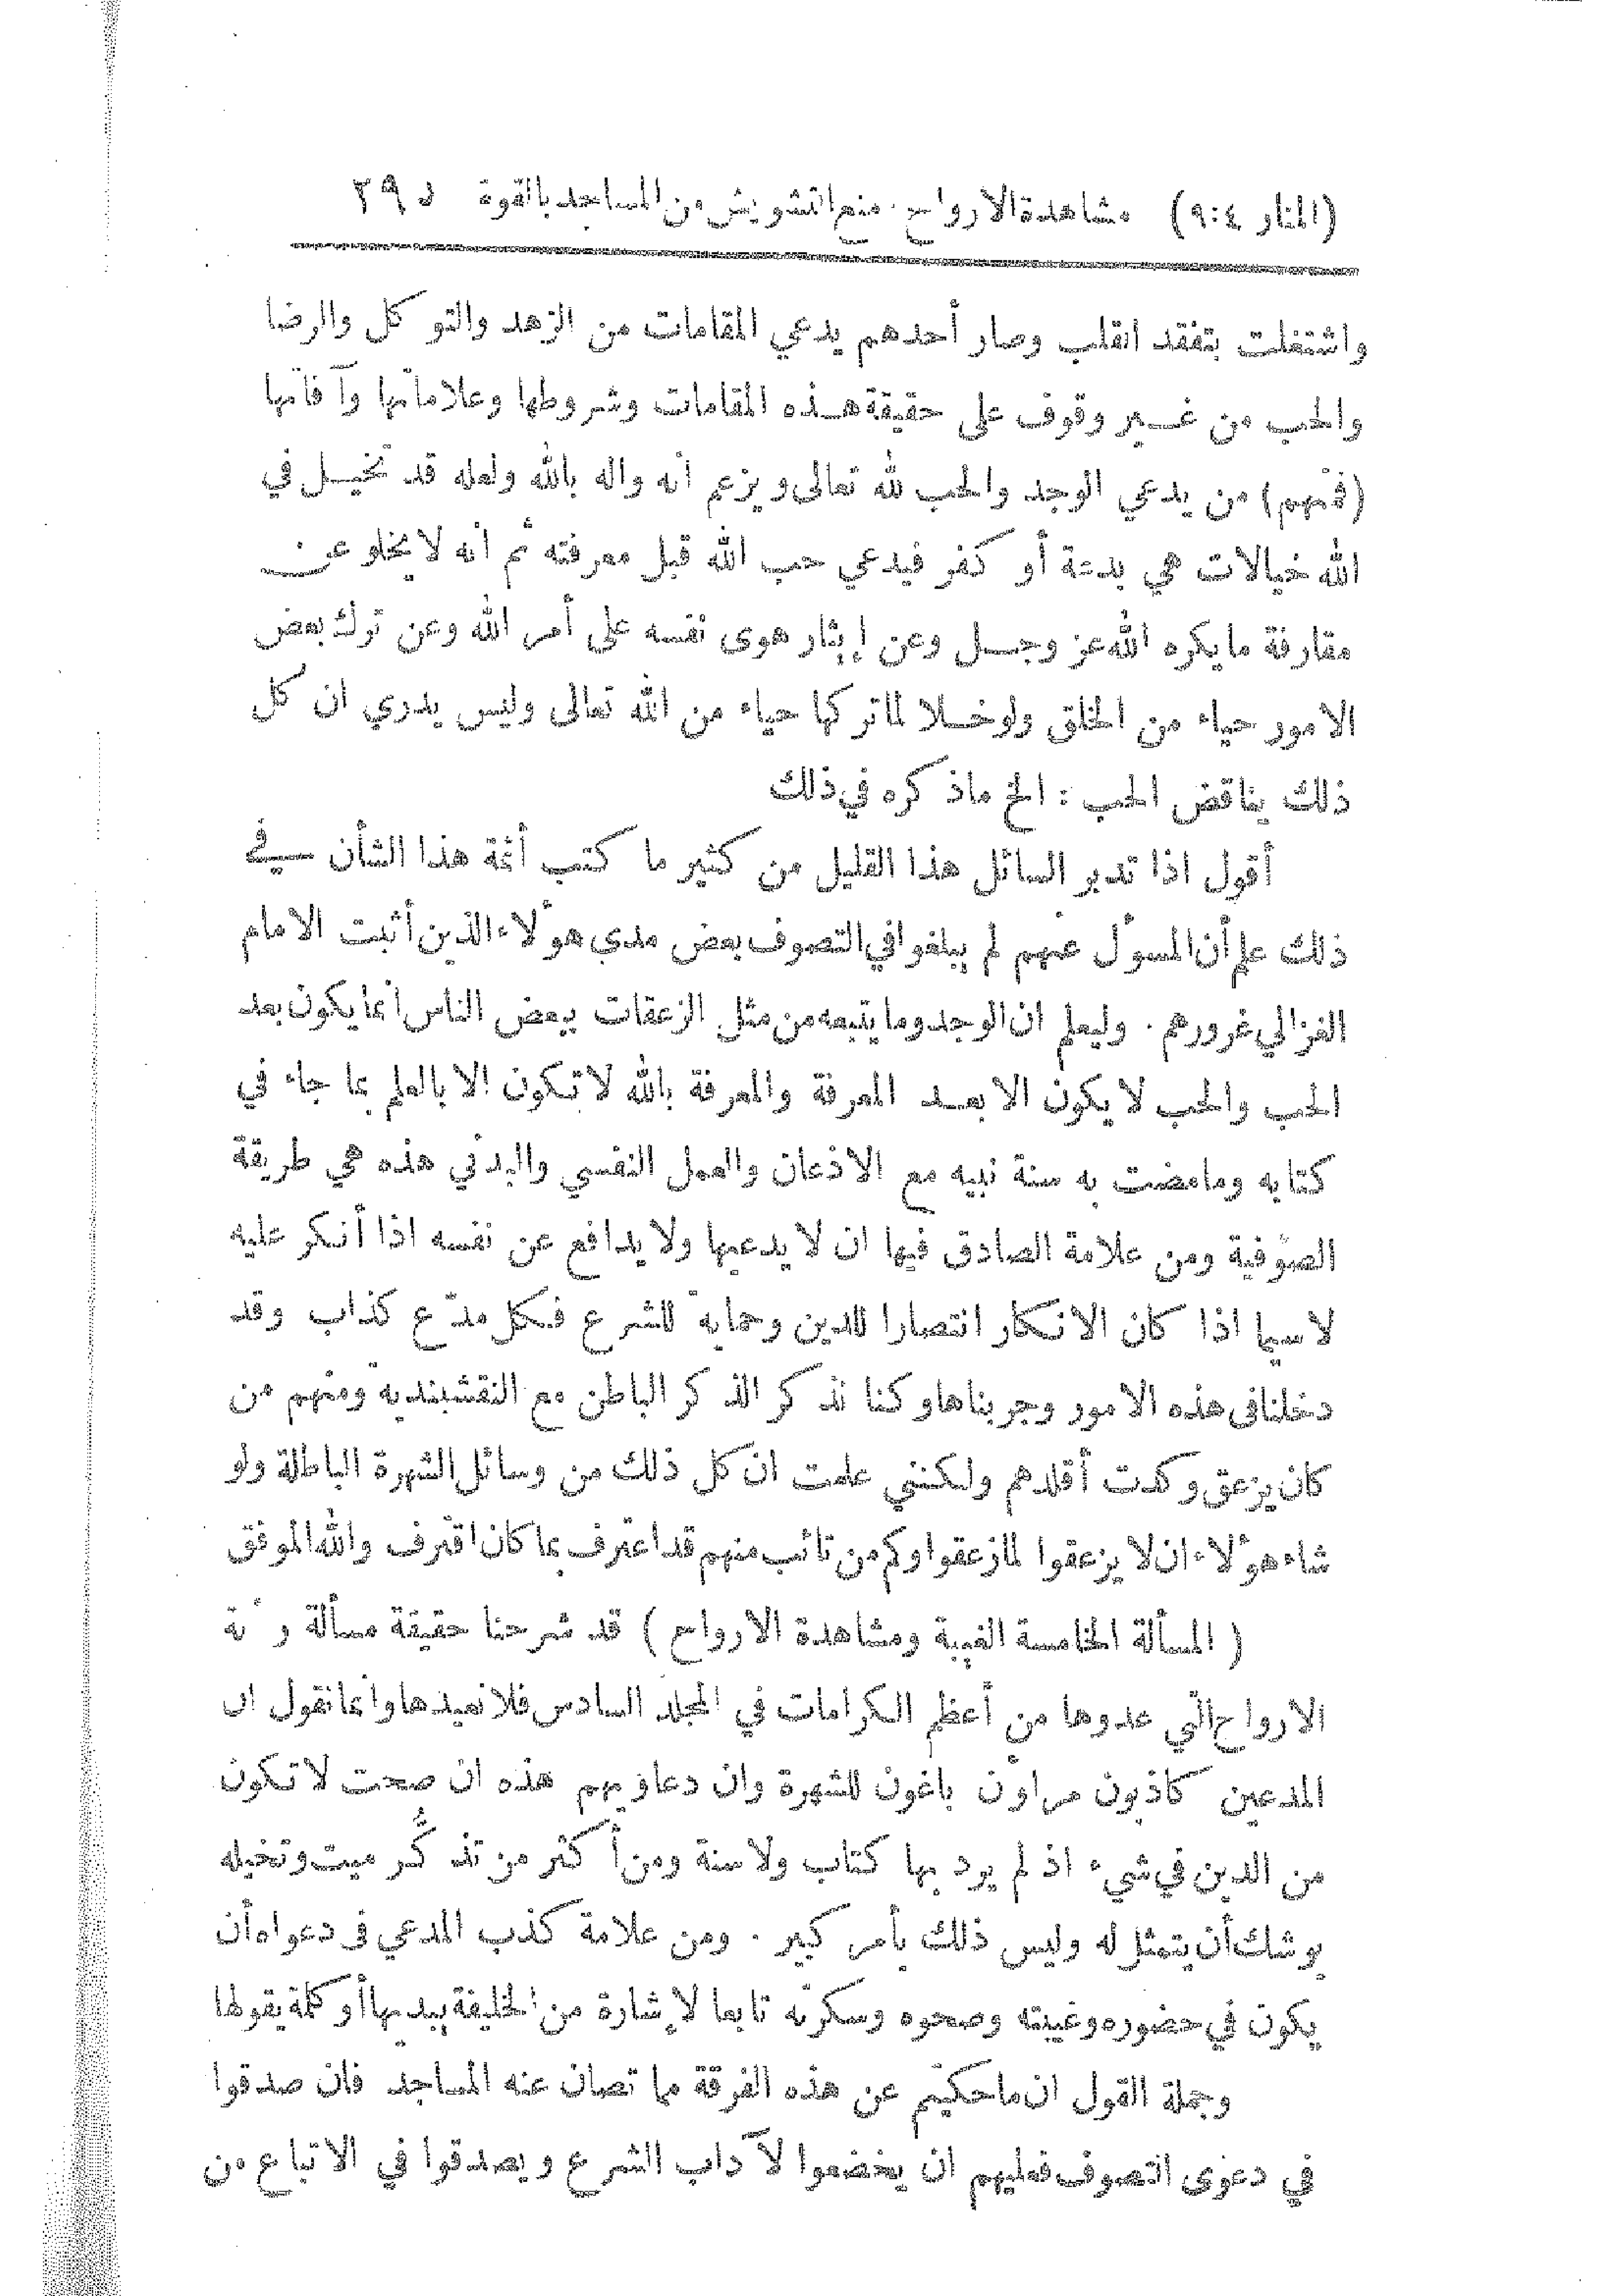 (المنار ٩:٤) مشاهدة الارواح. منع التشويش من المساجد بالقوة ٢٩
واشتغلت بتفقد القلب وصار أحدهم يدعي المقامات من الزهد والتوكل والرضا
والحب من غير وقوف على حقيقة هذه المقامات وشروطها وعلاماتها وآفاتها
(فمنهم) من يدعي الوجد والحب لله تعالى ويزعم انه واله بالله ولعله قد تخيل في
الله خيالات هي بدعة أو كفر فيدعي حب الله قبل معرفته ثم انه لا يخلو عن
مقارفة ما يكره الله عز وجل وعن إيثار هوى نفسه على أمر الله وعن ترك بعض
الامور حياء من الخلق ولو خلا لما تركها حياء من الله تعالى وليس يدري ان كل
ذلك يناقض الحب : الخ ماذكره في ذلك
أقول اذا تدبر السائل هذا القليل من كثير ما كتب أئمة هذا الشأن في
ذلك علم أن المسؤل عنهم لم يبلغوا في التصوف بعض مدى هؤلاء الذين أثبت الامام
الغزالي غرورهم . وليعلم ان الوجد وما يتبعه من مثل الزعقات ببعض الناس انما يكون بعد
الحب والحب لا يكون الا بعد المعرفة والمعرفة بالله لا تكون الا بالعلم بما جاء في
كتابه ومامضت به سنة نبيه مع الاذعان والعمل النفسي والبدني هذه هي طريقة
الصوفية ومن علامة الصادق فيها ان لا يدعيها ولا يدافع عن نفسه اذا أنكر عليه
لا سيما اذا كان الانكار انتصارا للدين وحماية للشرع فكل مدّع كذاب وقد
دخلنا في هذه الامور وجربناها وكنا نذكر الذكر الباطن مع النقشبندية ومنهم من
كان يزعق وكدت أقلدهم ولكنني علمت ان كل ذلك من وسائل الشهرة الباطلة ولو
شاء هؤلاء ان لا يزعقوا لما زعقوا وكم من تائب منهم قد اعترف بما كان اقترف والله الموفق
( المسألة الخامسة الغيبة ومشاهدة الارواح ) قد شرحنا حقيقة مسألة
الارواح التي عدوها من أعظم الكرامات في المجلد السادس فلا نعيدها وانما نقول ان
المدعين كاذبون مراؤن باغون للشهرة وان دعاويهم هذه ان صحت لا تكون
من الدين في شيء اذ لم يرد بها كتاب ولا سنة ومن أكثر من تذكُّر ميت وتخيله
يوشك أن يتمثل له وليس ذلك بأمر كبير . ومن علامة كذب المدعي في دعواه أن
يكون في حضوره وغيبته وصحوه وسكرته تابعا لإشارة من الخليفة يبديها أو كلمة يقولها
وجملة القول ان ماحكيتم عن هذه الفرقة مما تصان عنه المساجد فان صدقوا
في دعوى التصوف فعليهم ان يخضعوا لآداب الشرع ويصدقوا في الاتباع من